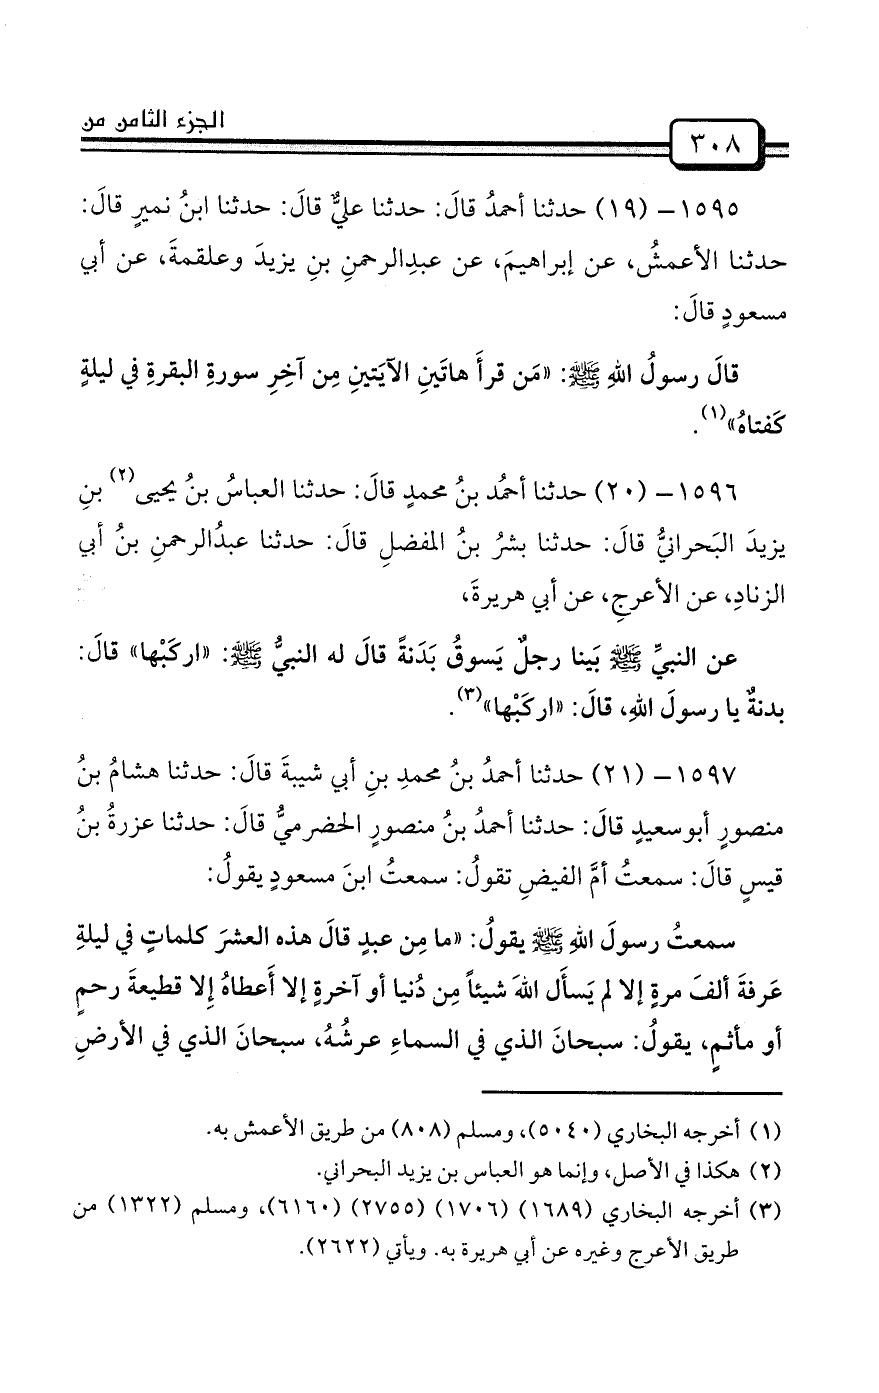 الجزء الثامن من
٣٠٨
١٥٩٥- (١٩) حدثنا أحمدُ قالَ: حدثنا عليٌّ قالَ: حدثنا ابنُ نميرٍ قالَ:
حدثنا الأعمشُ، عن إبراهيمَ، عن عبدِالرحمنِ بنِ يزيدَ وعلقمةَ، عن أبي
مسعودٍ قالَ:
قالَ رسولُ اللهِ ﷺ: «مَن قرأَ هاتَينِ الآيَتينِ مِن آخِرِ سورةِ البقرةِ في ليلةٍ
كَفتاهُ»(١).
١٥٩٦- (٢٠) حدثنا أحمدُ بنُ محمدٍ قالَ: حدثنا العباسُ بنُ يحيى(٢) بنِ
يزيدَ البَحرانيُّ قالَ: حدثنا بشرُ بنُ المفضلِ قالَ: حدثنا عبدُالرحمنِ بنُ أبي
الزنادِ، عن الأعرجِ، عن أبي هريرةَ،
عن النبيِّ ﷺ بَينا رجلٌ يَسوقُ بَدَنةً قالَ له النبيُّ ﷺ: «اركَبْها» قالَ:
بدنةٌ يا رسولَ اللهِ، قالَ: «اركَبْها»(٣).
١٥٩٧- (٢١) حدثنا أحمدُ بنُ محمدِ بنِ أبي شيبةَ قالَ: حدثنا هشامُ بنُ
منصورٍ أبوسعيدٍ قالَ: حدثنا أحمدُ بنُ منصورٍ الحَضرميُّ قالَ: حدثنا عزرةُ بنُ
قيسٍ قالَ: سمعتُ أمَّ الفيضِ تقولُ: سمعتُ ابنَ مسعودٍ يقولُ:
سمعتُ رسولَ اللهِ ﷺ يقولُ: «ما مِن عبدٍ قالَ هذه العشرَ كلماتٍ في ليلةِ
عَرفةَ ألفَ مرةٍ إلا لم يَسأَل اللهَ شيئاً مِن دُنيا أو آخرةٍ إلا أَعطاهُ إِلا قطيعةَ رحمٍ
أو مأثمٍ، يقولُ: سبحانَ الذي في السماءِ عرشُهُ، سبحانَ الذي في الأرضِ
(١) أخرجه البخاري (٥٠٤٠)، ومسلم (٨٠٨) من طريق الأعمش به.
(٢) هكذا في الأصل، وإنما هو العباس بن يزيد البحراني.
(٣) أخرجه البخاري (١٦٨٩) (١٧٠٦) (٢٧٥٥) (٦١٦٠)، ومسلم (١٣٢٢) من
طريق الأعرج وغيره عن أبي هريرة به. ويأتي (٢٦٢٢).